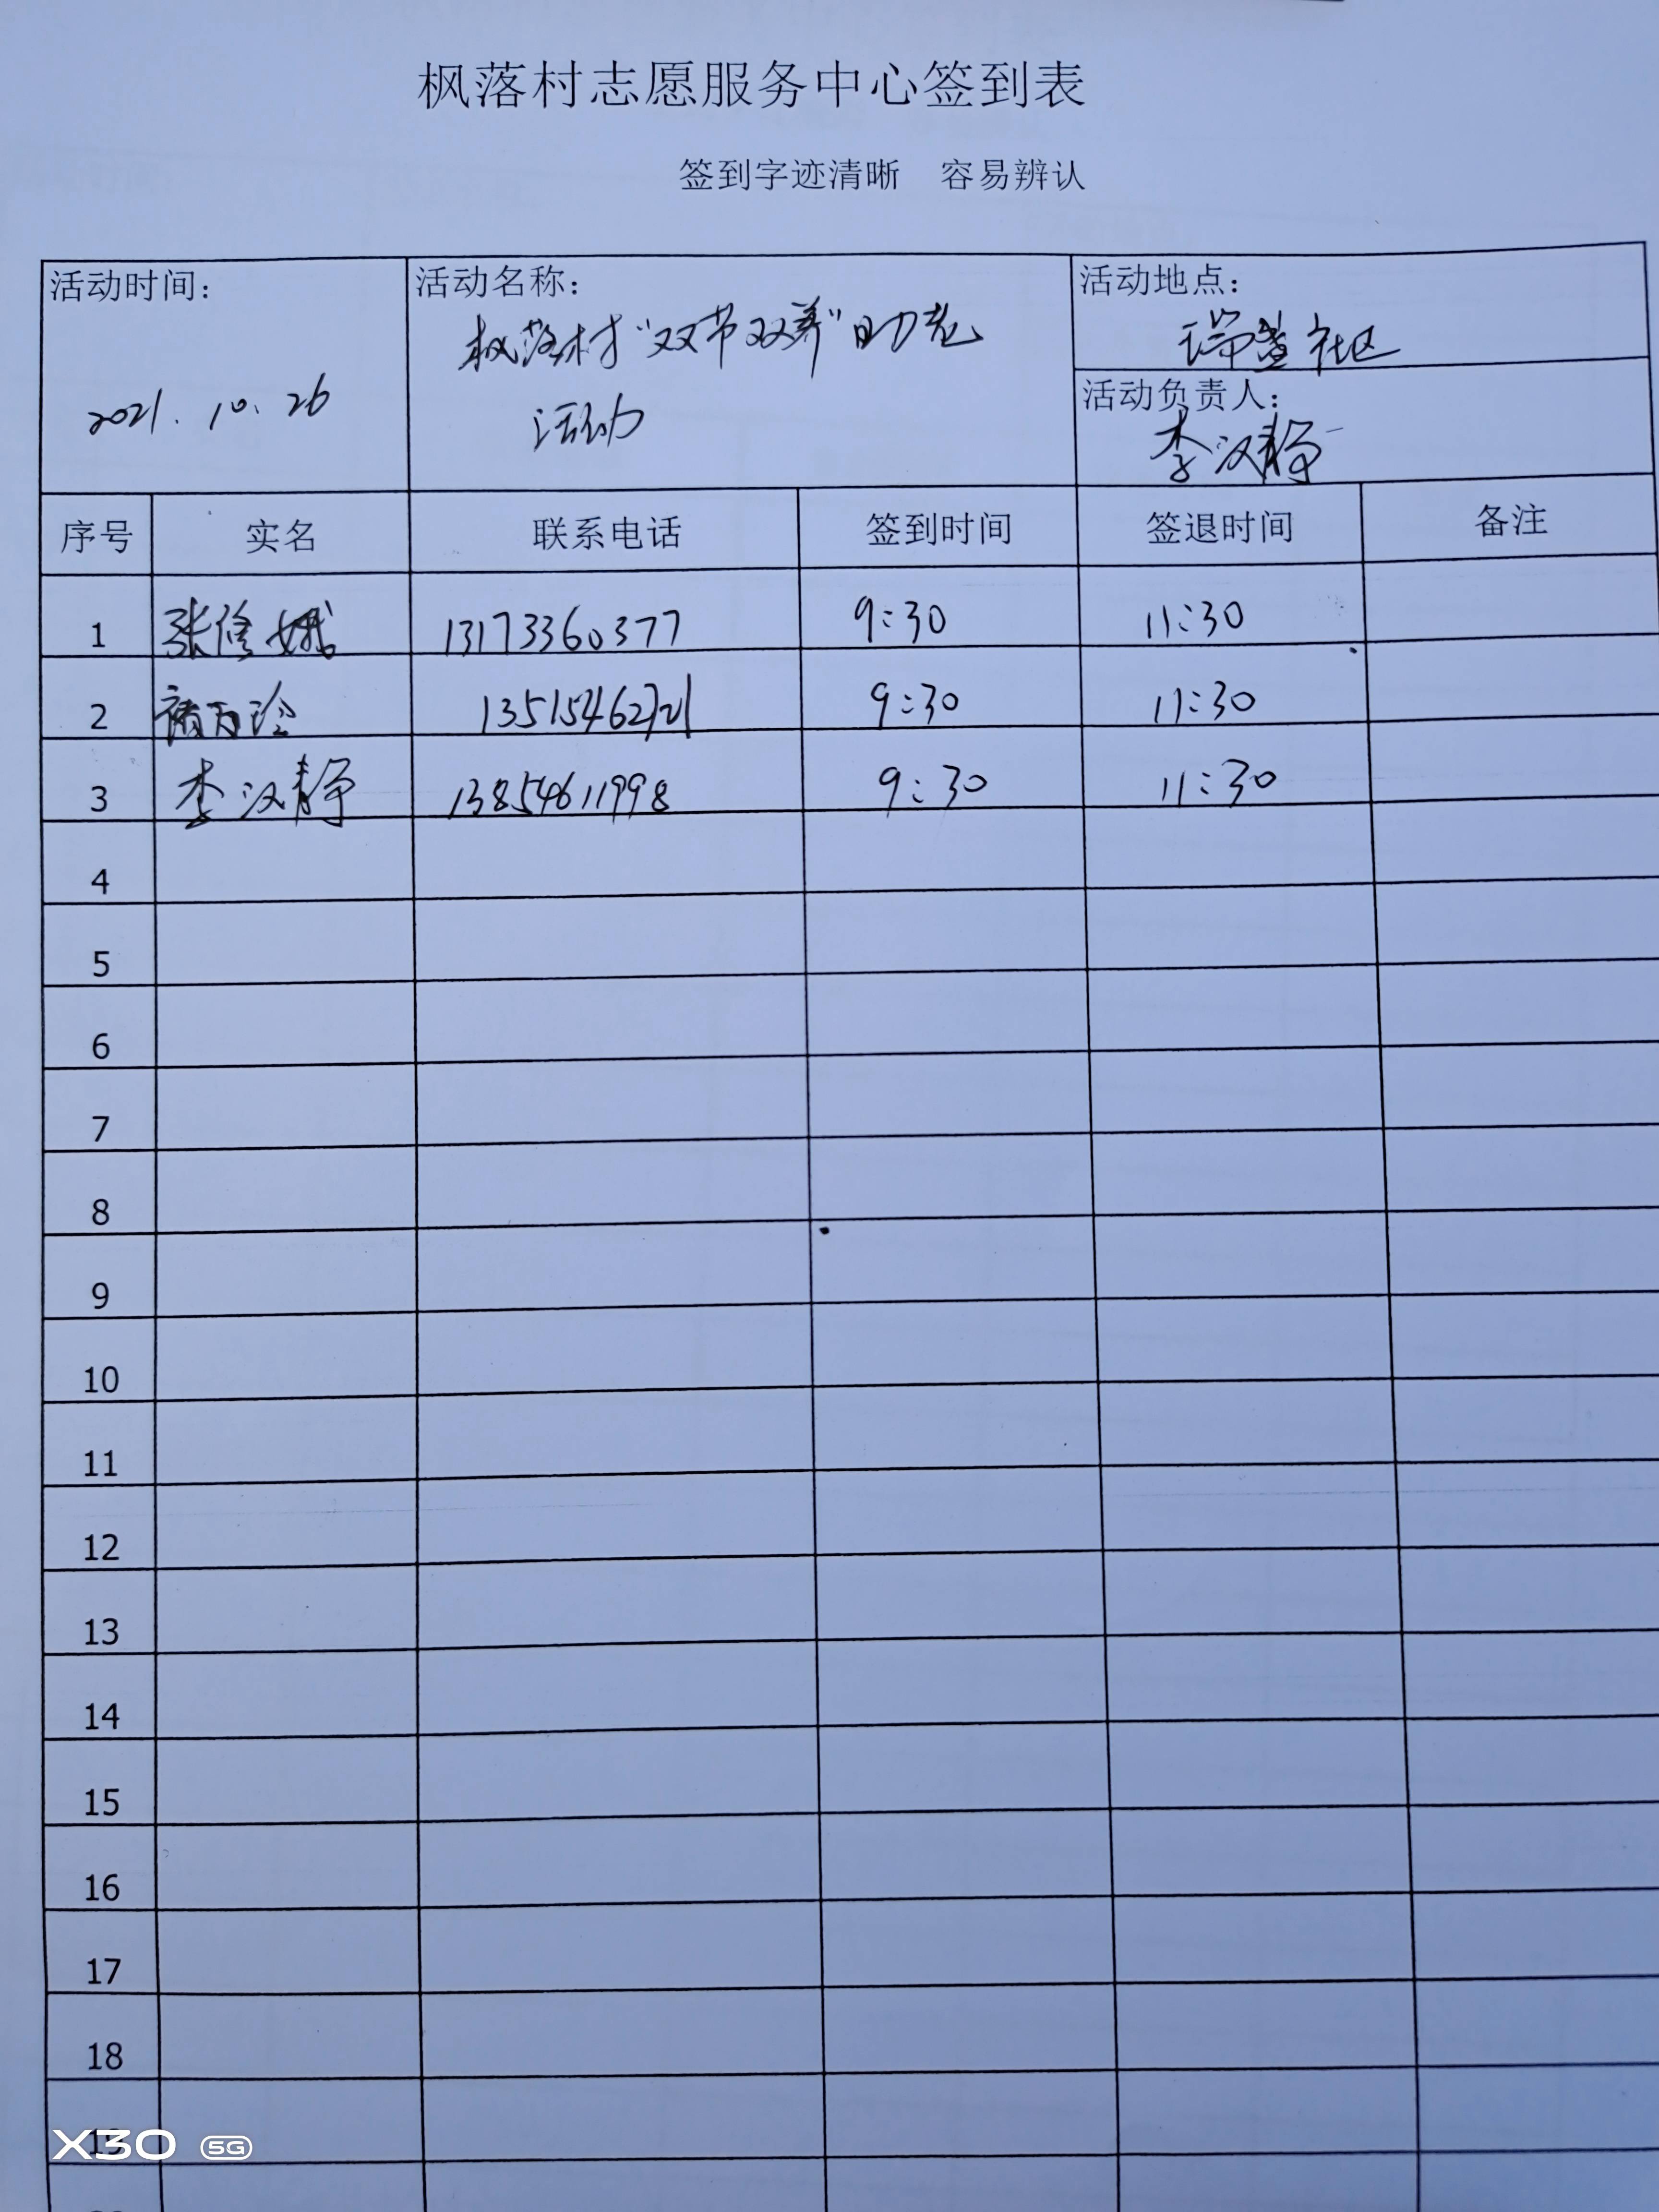 枫落村志愿服务中心签到表
签到字迹清晰 容易辨认
活动时间： 活动名称： 活动地点：
枫落村“双节双养”助老
社区
活动负责人：
2021.10.26 活动
李汉静
序号 实名 联系电话 签到时间 签退时间 备注
1 张修娥 13173360377 9:30 11:30
2 9:30 11:30
3 李汉静 13854611998 9:30 11:30
4
5
6
7
8
9
10
11
12
13
14
15
16
17
18
19
X30 5G